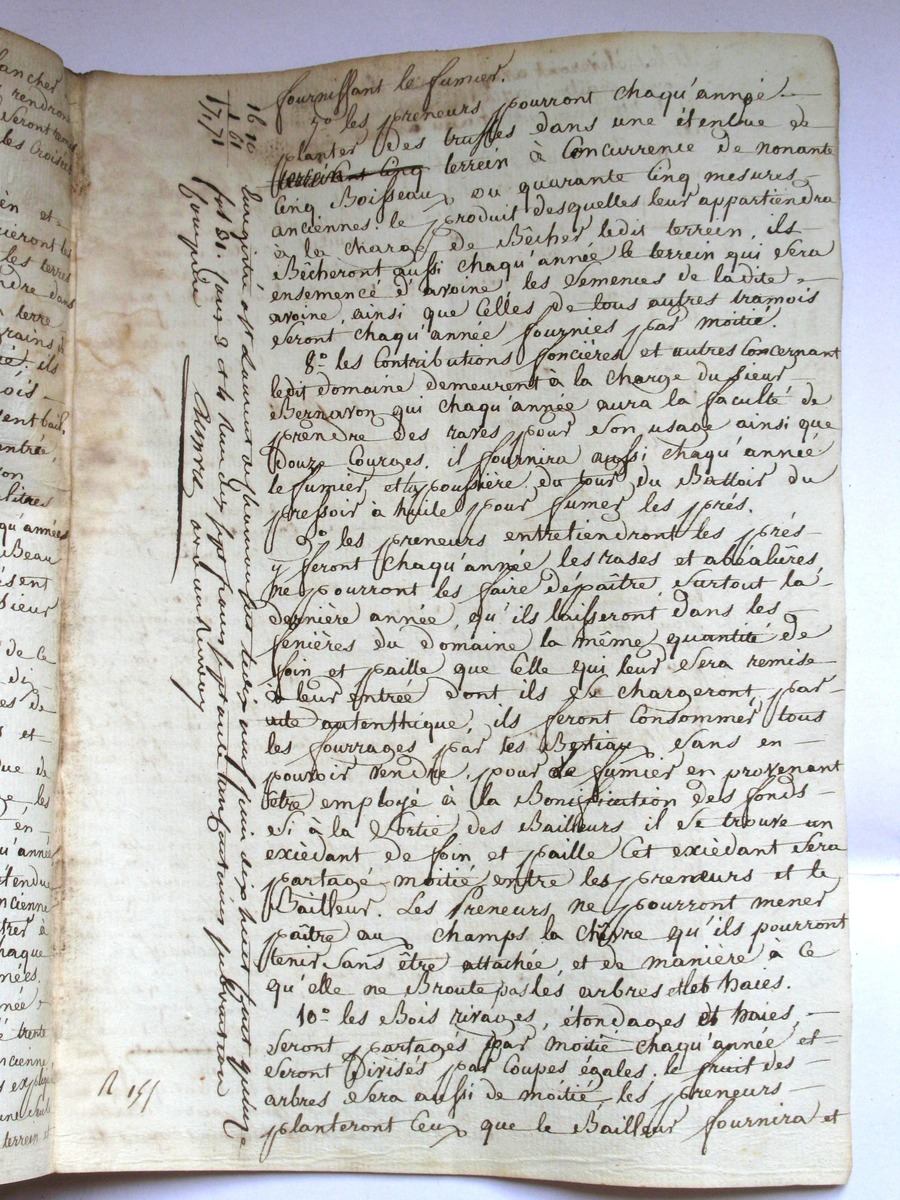 fournissant le fumier.
7º les preneurs pourront chaqu'année
planter des truffes dans une étendue de
terrein à Concurrence de nonante
Cinq Boisseaux ou quarante Cinq mesures
anciennes. le produit desquelles leur appartiendra
à la charge de Bêcher ledit terrein, ils
Bêcheront aussi chaqu'année le terrein qui sera
ensemencé d'avoine, les semences de ladite
avoine, ainsi que Celles de tous autres tramois
seront chaqu'année fournies par moitié.
8º les Contributions foncières et autres Concernant
ledit domaine demeurent à la charge du sieur
Bernavon qui chaqu'année aura la faculté de
prendre des raves pour son usage ainsi que
douze Courges. il fournira aussi chaqu'année
le fumier et la poussière du tour du Battoir du
pressoir à huile pour fumer les prés.
9º les preneurs entretiendront les prés
y feront chaqu'année les rases et abéalières,
ne pourront les faire dépaître, surtout la
dernière année, qu'ils laisseront dans les
fenières du domaine la même quantité de
foin et paille que Celle qui leur sera remise
à leur entrée dont ils se chargeront, par
acte autenthique, ils feront Consommer tous
les fourrages par les Bestiaux sans en
pouvoir vendre, pour le fumier en provenant
être employé à la Bonification des fonds
si à la sortie des Bailleurs il se trouve un
exièdant de foin et paille Cet exièdant sera
partagé moitié entre les preneurs et le
Bailleur. Les Preneurs ne pourront mener
paître aux champs la chèvre qu'ils pourront
tenir sans être attachée, et de manière à Ce
qu'elle ne Broute pas les arbres et les haies.
10º les Bois rivages, étondages et haies,
seront partagés par moitié chaqu'année et
seront divisés par Coupes égales. le fruit des
arbres sera aussi de moitié, les preneurs
planteront Ceux que le Bailleur fournira et
16 10
1 61
17,71
Enregistré à St Laurent de juin dix huit cent quinze
fos 81. Cases 3 et
R 155